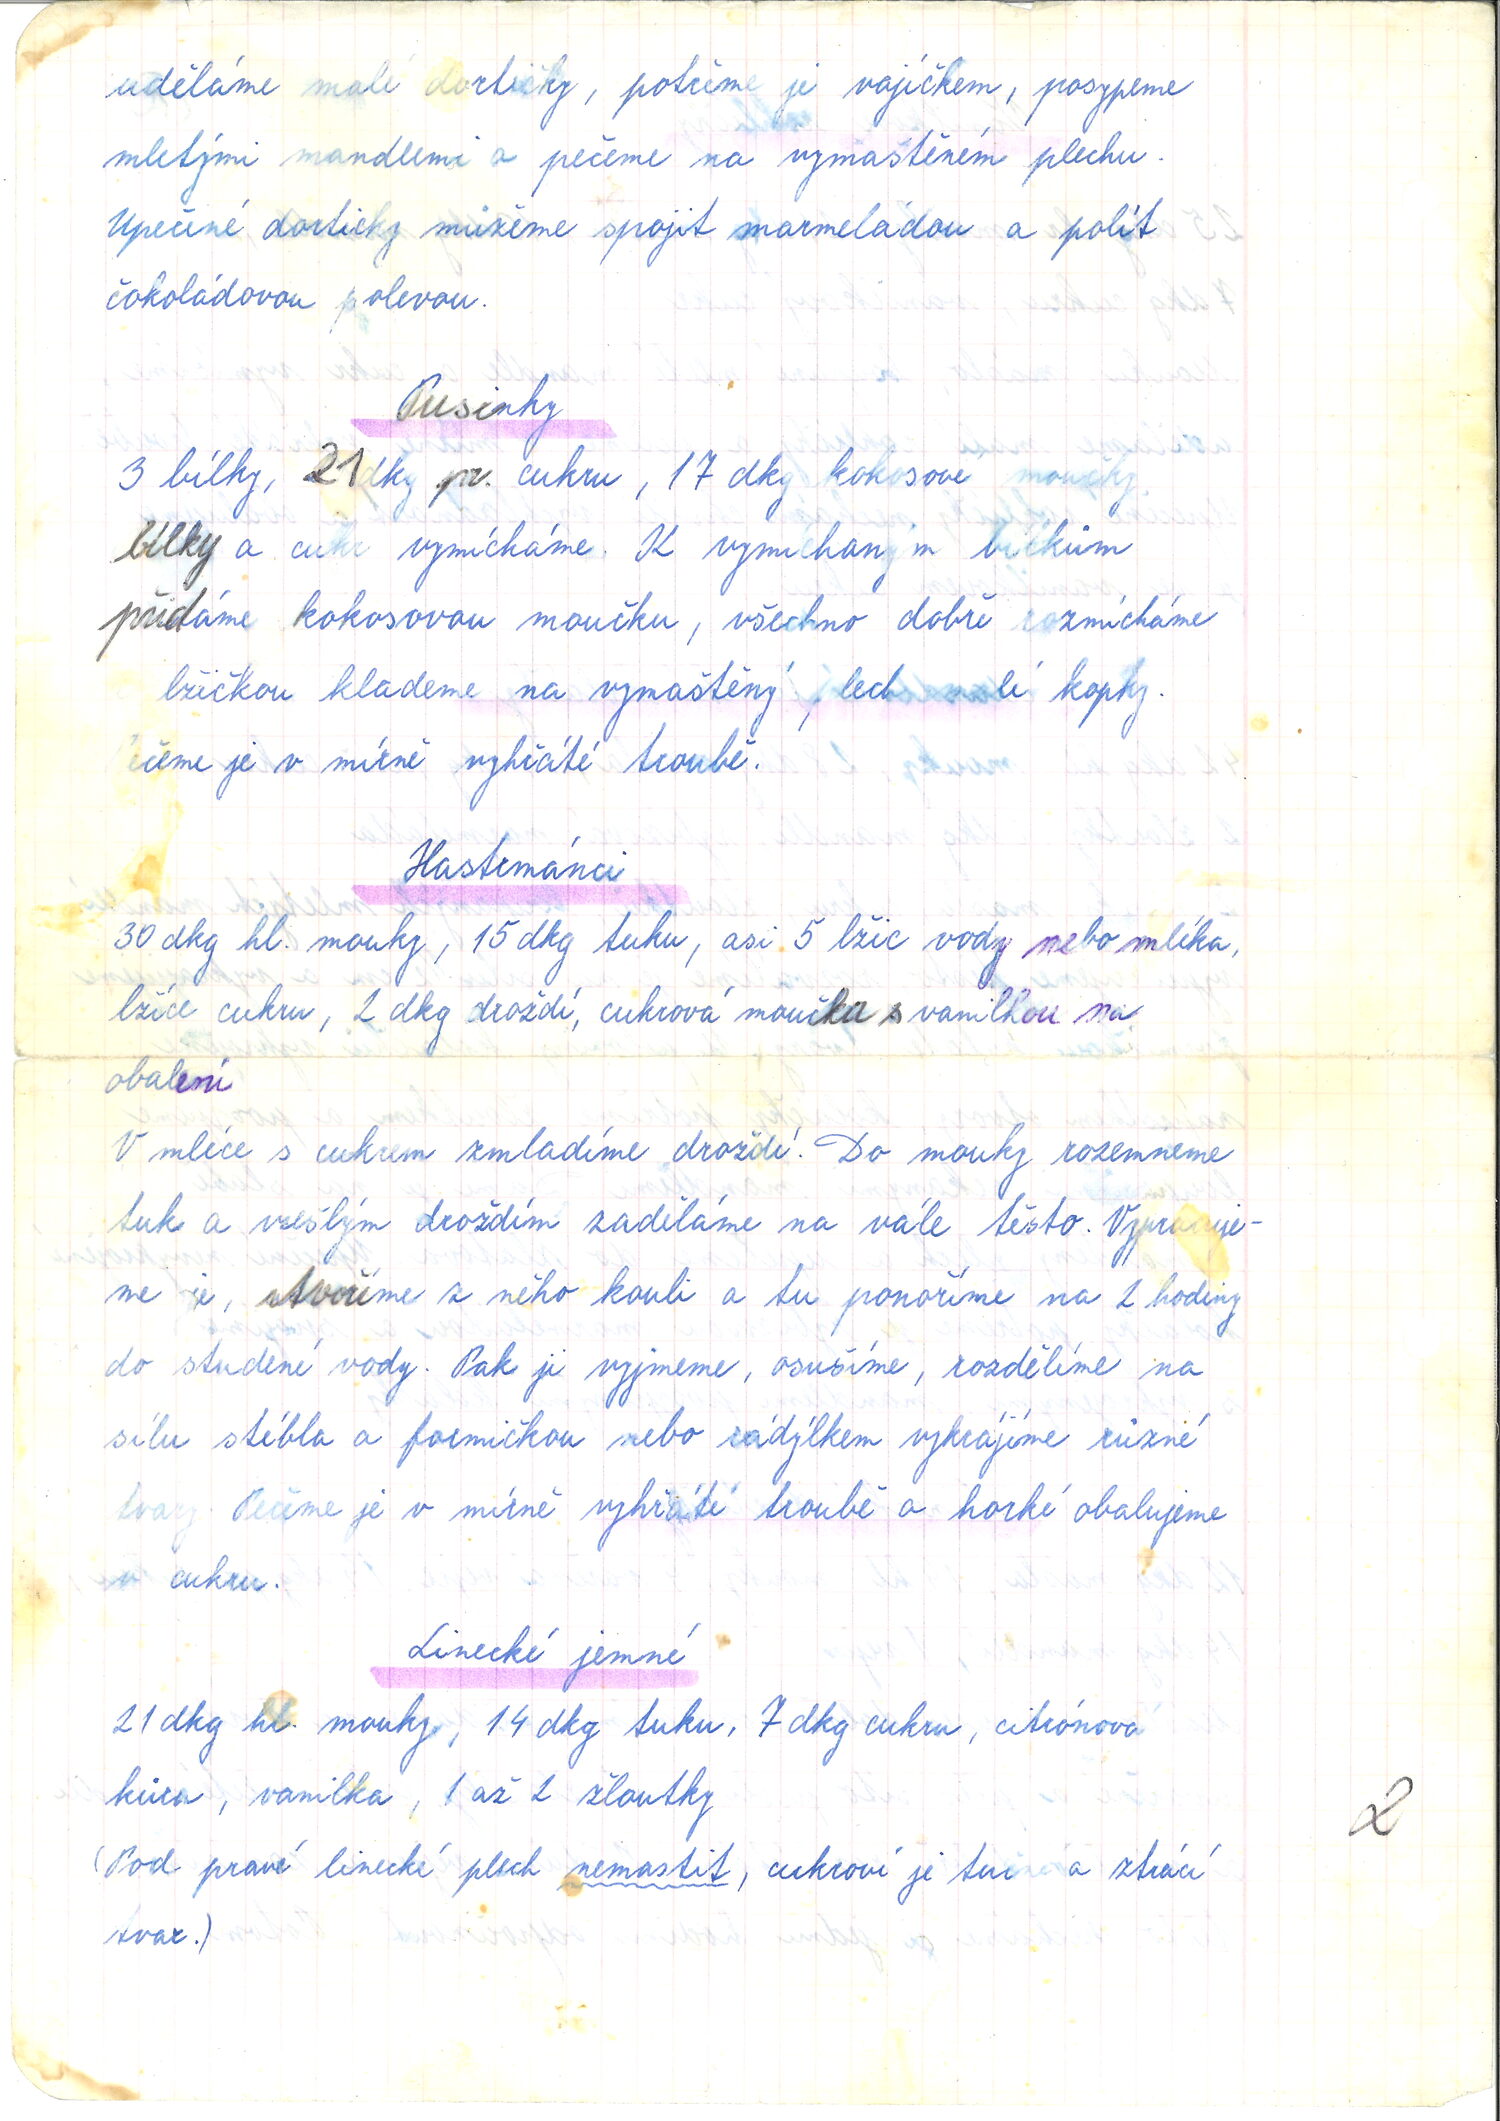 uděláme malé dortičky, potřeme je vajíčkem, posypeme
mletými mandlemi a pečeme na vymaštěném plechu.
Upečené dortičky můžeme spojit marmeládou a polít
čokoládovou polevou.
Pusinky
3 bílky, 21 dkg pr. cukru, 17 dkg kokosové moučky
bílky a cukr vymícháme. K vymíchaným bílkům
přidáme kokosovou moučku, všechno dobře rozmícháme
lžičkou klademe na vymaštěný plech malé kopky.
Pečeme je v mírně vyhřáté troubě.
Hastrmánci
30 dkg hl. mouky, 15 dkg tuku, asi 5 lžic vody nebo mlíka,
lžíce cukru, 2 dkg droždí, cukrová moučka s vanilkou na
obalení
V mléce s cukrem zmladíme droždí. Do mouky rozemneme
tuk a vzešlým droždím zaděláme na vále těsto. Vypracuje-
me je, utvoříme z něho kouli a tu ponoříme na 2 hodiny
do studené vody. Pak ji vyjmeme, osušíme, rozdělíme na
sílu stébla a formičkou nebo rádýlkem vykrájíme různé
tvary. Pečeme je v mírně vyhřáté troubě a horké obalujeme
v cukru.
Linecké jemné
21 dkg hl. mouky, 14 dkg tuku, 7 dkg cukru, citrónová
kůra, vanilka, 1 až 2 žloutky
(Pod pravé linecké plech nemastit, cukroví je a ztrácí
tvar.)
2